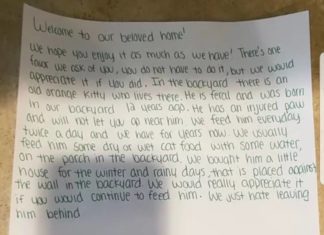 Welcome to our beloved home!
We hope you enjoy it as much as we have! There's one
favor we ask of you, you do not have to do it, but we would
appreciate it if you did. In the backyard there is an
old orange kitty who lives there. He is feral and was born
in our backyard 12 years ago. He has an injured paw
and will not let you go near him. We feed him everyday
twice a day and we have for years now. We usually
feed him some dry or wet cat food with some water,
on the porch in the backyard. We bought him a little
house for the winter and rainy days, that is placed against
the wall in the backyard. We would really appreciate it
if you would continue to feed him. We just hate leaving
him behind